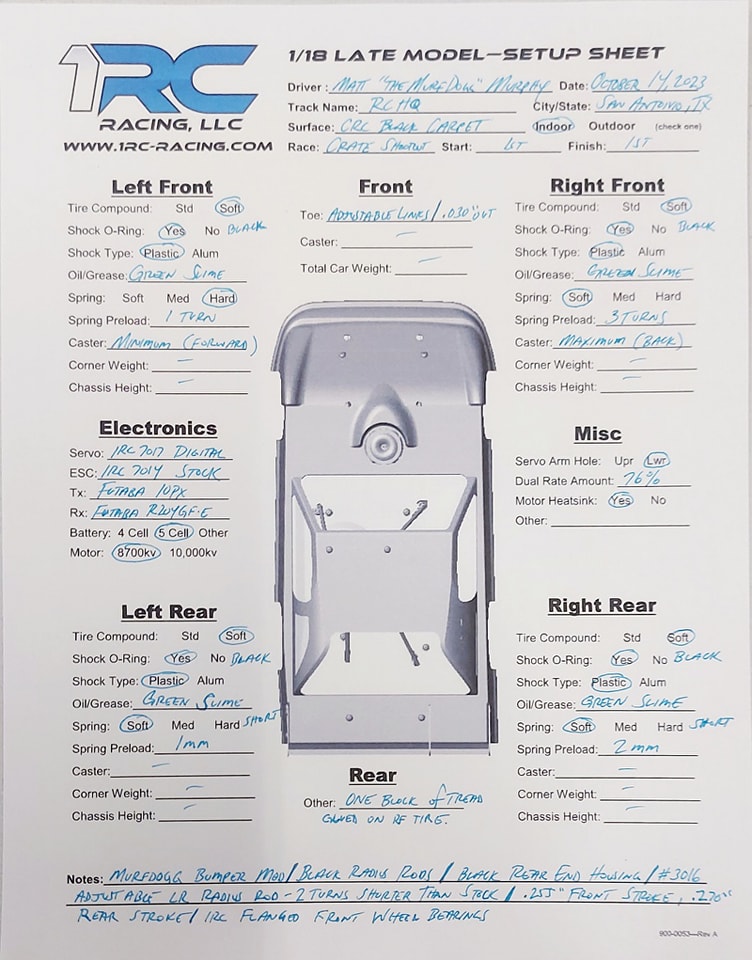 1RC
RACING, LLC
WWW.1RC-RACING.COM
1/18 LATE MODEL—SETUP SHEET
Driver: MATT "THE MURFDOGG" MURPHY Date: OCTOBER 14, 2023
Track Name: RCHQ City/State: SAN ANTONIO, TX
Surface: CRC BLACK CARPET Indoor Outdoor (check one)
Race: CRATE SHOOTOUT Start: 1ST Finish: 1ST
Left Front
Tire Compound: Std Soft
Shock O-Ring: Yes No BLACK
Shock Type: Plastic Alum
Oil/Grease: GREEN SLIME
Spring: Soft Med Hard
Spring Preload: 1 TURN
Caster: MINIMUM (FORWARD)
Corner Weight: —
Chassis Height: —
Front
Toe: ADJUSTABLE LINKS / .030" OUT
Caster: —
Total Car Weight: —
Right Front
Tire Compound: Std Soft
Shock O-Ring: Yes No BLACK
Shock Type: Plastic Alum
Oil/Grease: GREEN SLIME
Spring: Soft Med Hard
Spring Preload: 3 TURNS
Caster: MAXIMUM (BACK)
Corner Weight: —
Chassis Height: —
Electronics
Servo: 1RC 7017 DIGITAL
ESC: 1RC 7014 STOCK
Tx: FUTABA 10PX
Rx: FUTABA
Battery: 4 Cell 5 Cell Other
Motor: 8700kv 10,000kv
Misc
Servo Arm Hole: Upr Lwr
Dual Rate Amount: 76%
Motor Heatsink: Yes No
Other:
Left Rear
Tire Compound: Std Soft
Shock O-Ring: Yes No BLACK
Shock Type: Plastic Alum
Oil/Grease: GREEN SLIME
Spring: Soft Med Hard SHORT
Spring Preload: 1mm
Caster: —
Corner Weight: —
Chassis Height: —
Rear
Other: ONE BLOCK of TREAD
GLUED ON RF TIRE.
Right Rear
Tire Compound: Std Soft
Shock O-Ring: Yes No BLACK
Shock Type: Plastic Alum
Oil/Grease: GREEN SLIME
Spring: Soft Med Hard SHORT
Spring Preload: 2mm
Caster: —
Corner Weight: —
Chassis Height: —
Notes: MURFDOGG BUMPER MOD / BLACK RADIUS RODS / BLACK REAR END HOUSING / #3016
ADJUSTABLE LR RADIUS ROD - 2 TURNS SHORTER THAN STOCK / .255" FRONT STROKE, .270"
REAR STROKE / 1RC FLANGED FRONT WHEEL BEARINGS
900-0053—Rev A